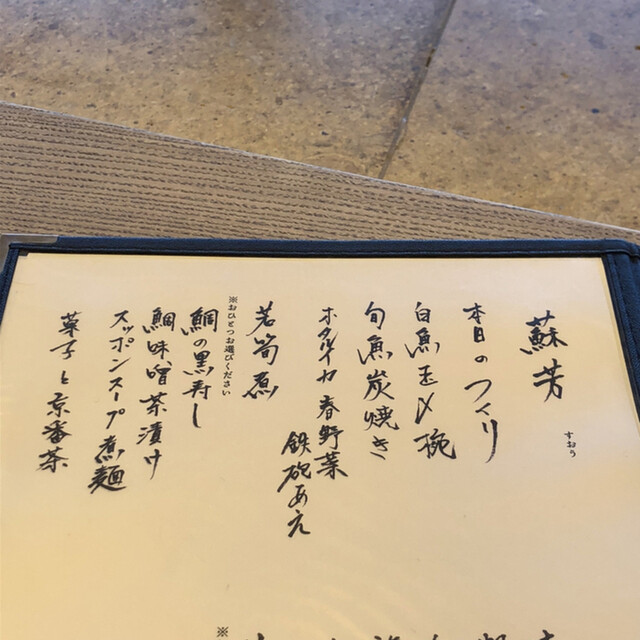 蘇芳
すおう
本日のつくり
白魚玉〆椀
旬魚炭焼き
ホタルイカ春野菜
鉄砲あえ
若筍煮
※おひとつお選びください
鯛の黒寿し
鯛味噌茶漬け
スッポンスープ煮麺
菓子と京番茶
※